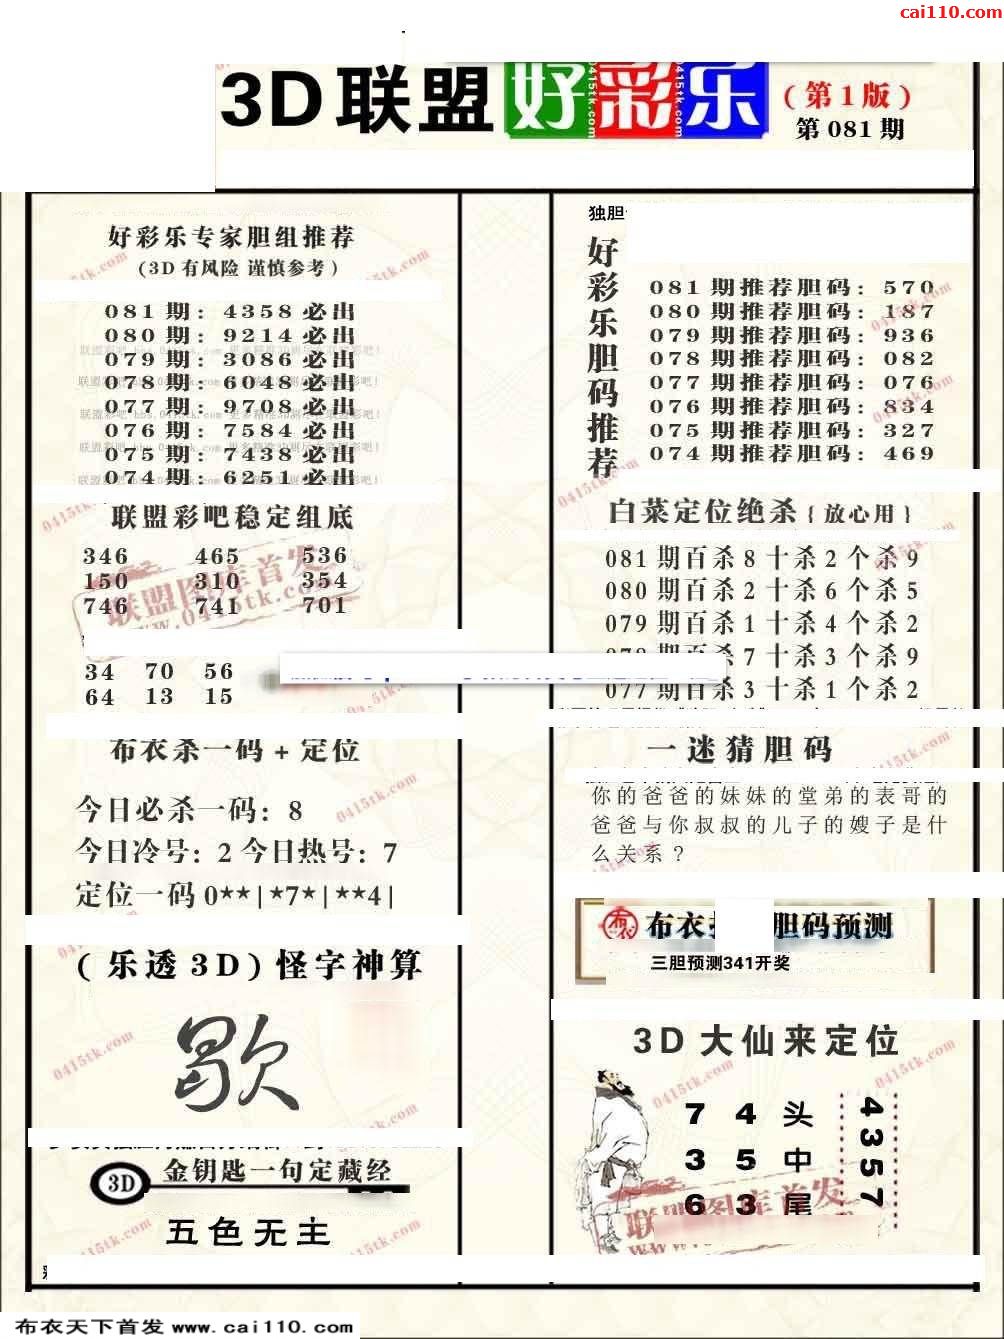 cai110.com
3D联盟好彩乐
(第1版)
第081期
好彩乐专家胆组推荐
(3D有风险 谨慎参考)
081期: 4358必出
080期: 9214必出
079期: 3086必出
078期: 6048必出
077期: 9708必出
076期: 7584必出
075期: 7438必出
074期: 6251必出
联盟彩吧稳定组底
346 465 536
150 310 354
746 741 701
34 70 56
64 13 15
布衣杀一码+定位
今日必杀一码: 8
今日冷号: 2 今日热号: 7
定位一码 0**|*7*|**4|
(乐透3D)怪字神算
歇
3D 金钥匙一句定藏经
五色无主
独胆
好彩乐胆码推荐
081期推荐胆码: 570
080期推荐胆码: 187
079期推荐胆码: 936
078期推荐胆码: 082
077期推荐胆码: 076
076期推荐胆码: 834
075期推荐胆码: 327
074期推荐胆码: 469
白菜定位绝杀{放心用}
081期百杀8十杀2个杀9
080期百杀2十杀6个杀5
079期百杀1十杀4个杀2
078期百杀7十杀3个杀9
077期百杀3十杀1个杀2
一迷猜胆码
你的爸爸的妹妹的堂弟的表哥的
爸爸与你叔叔的儿子的嫂子是什
么关系?
布衣 胆码预测
三胆预测341开奖
3D大仙来定位
7 4 头
3 5 中
6 3 尾
4357
联盟图库首发
www.0415tk.com
0415tk.com
布衣天下首发 www.cai110.com